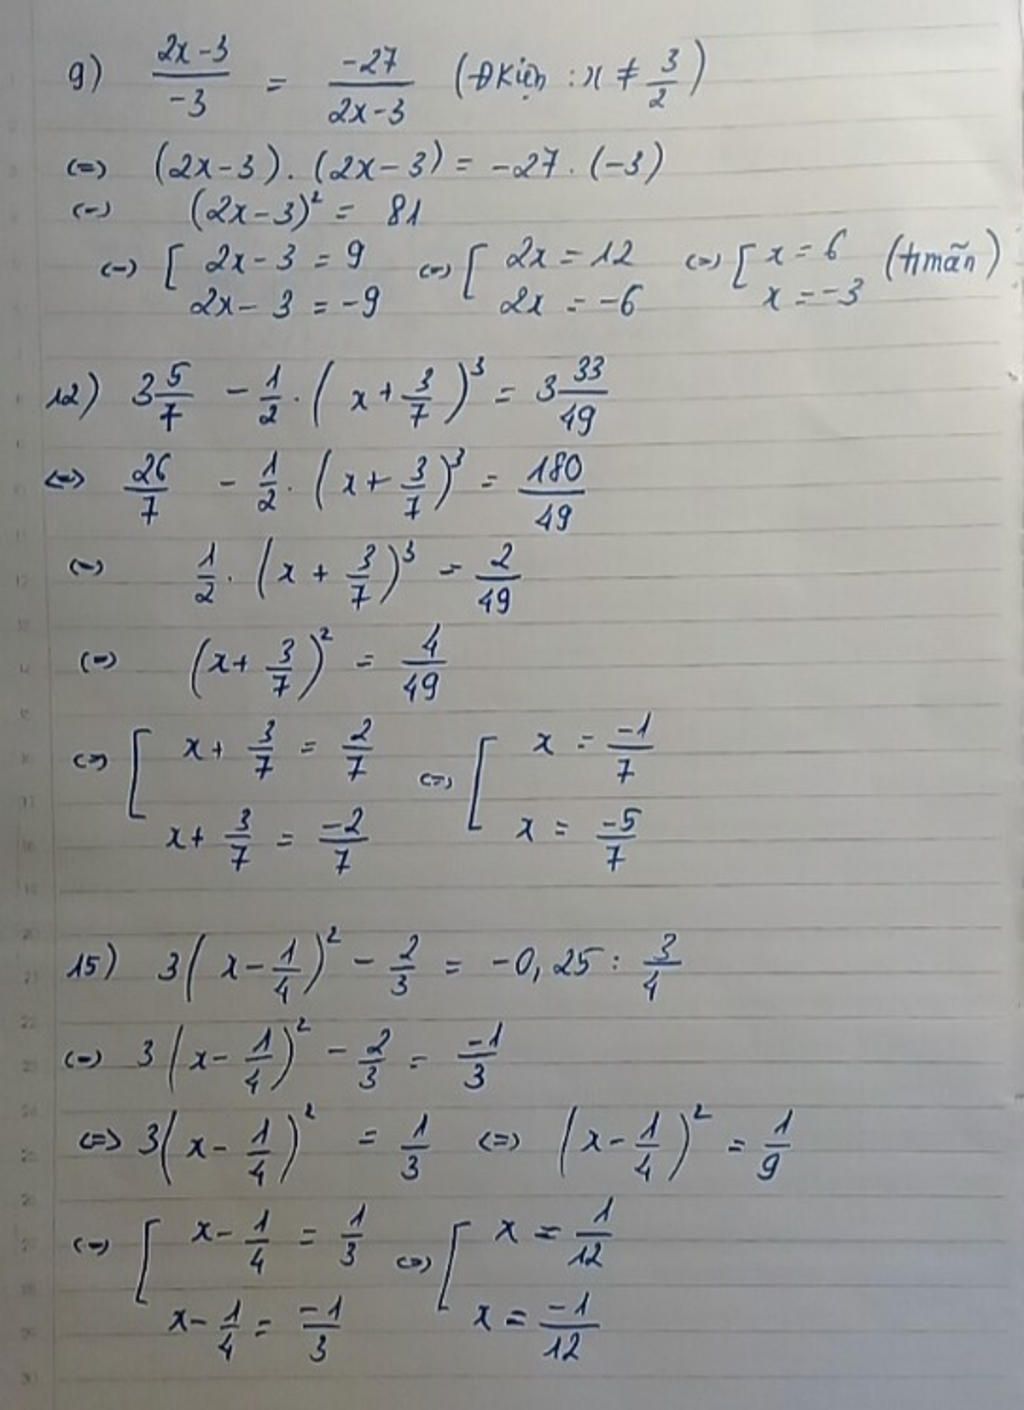 9) (2x-3)/(-3) = (-27)/(2x-3) (Đkiện : x ≠ 3/2)
(=) (2x-3).(2x-3) = -27.(-3)
(=) (2x-3)² = 81
(=) [ 2x-3 = 9 (=) [ 2x = 12 (=) [ x = 6 (tmãn)
2x-3 = -9 2x = -6 x = -3
12) 3 5/7 - 1/2 . (x + 3/7)³ = 3 33/49
<=> 26/7 - 1/2 . (x + 3/7)³ = 180/49
(=) 1/2 . (x + 3/7)³ = 2/49
(=) (x + 3/7)² = 4/49
(=) [ x + 3/7 = 2/7 (=) [ x = -1/7
x + 3/7 = -2/7 x = -5/7
15) 3(x - 1/4)² - 2/3 = -0,25 : 3/4
(=) 3(x - 1/4)² - 2/3 = -1/3
<=> 3(x - 1/4)² = 1/3 (=) (x - 1/4)² = 1/9
(=) [ x - 1/4 = 1/3 (=) [ x = 1/12
x - 1/4 = -1/3 x = -1/12